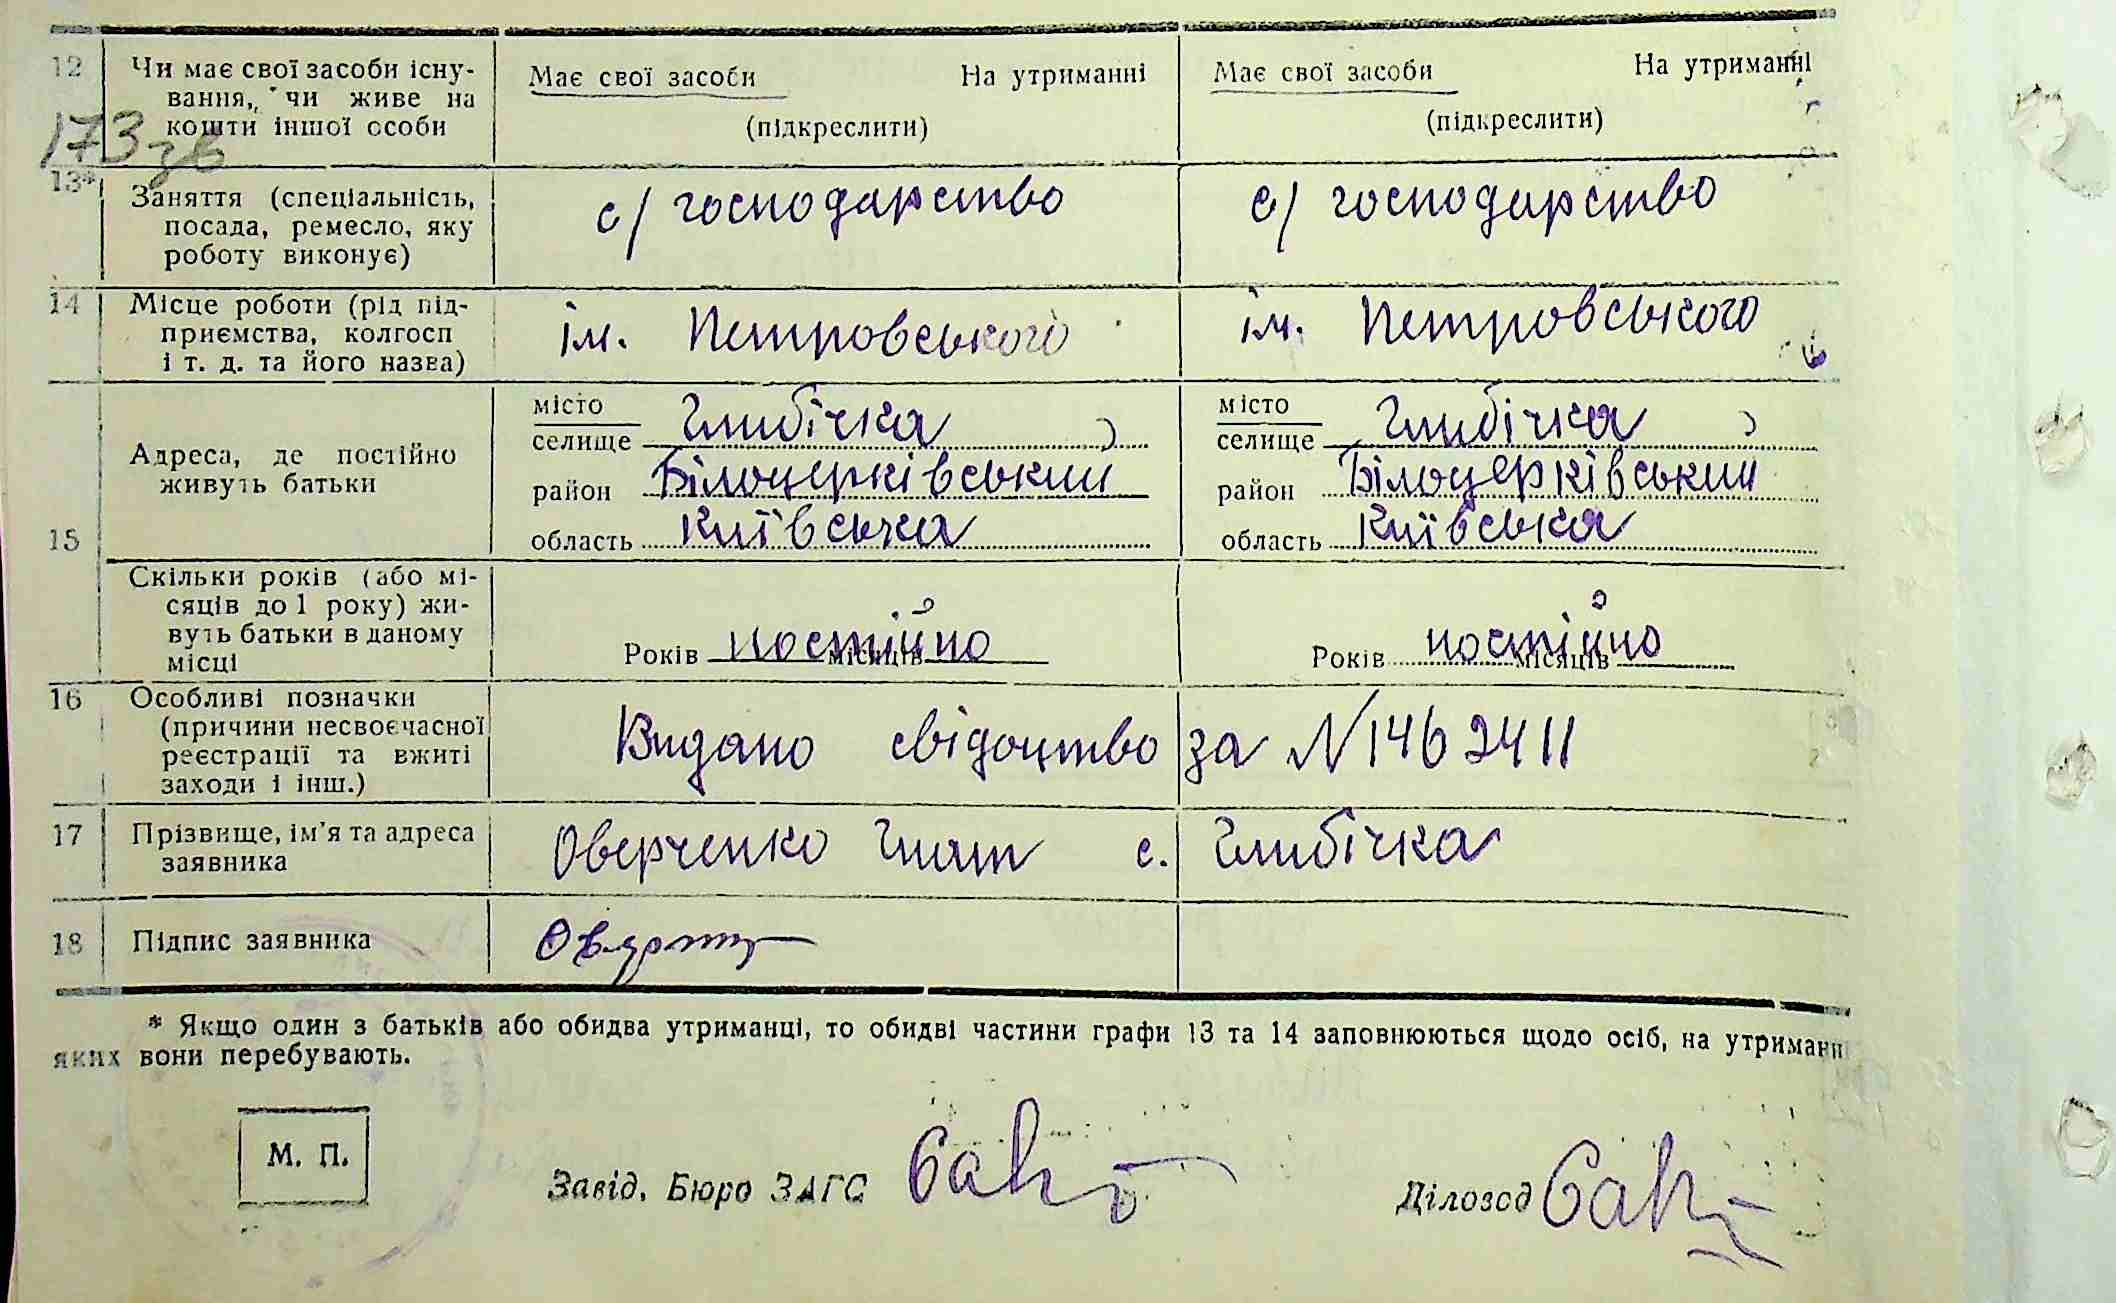 12 Чи має свої засоби існу- Має свої засоби На утриманні Має свої засоби На утриманні
вання, чи живе на
кошти іншої особи (підкреслити) (підкреслити)
173 зв
13* Заняття (спеціальність, с/господарство с/господарство
посада, ремесло, яку
роботу виконує)
14 Місце роботи (рід під- ім. Петровського ім. Петровського
приємства, колгосп
і т. д. та його назва)
місто Глибічка місто Глибічка
селище селище
Адреса, де постійно
живуть батьки район Білоцерківський район Білоцерківський
15 область Київська область Київська
Скільки років (або мі-
сяців до 1 року) жи-
вуть батьки в даному Років постійно місяців Років постійно місяців
місці
16 Особливі позначки
(причини несвоєчасної Видано свідоцтво за N1462411
реєстрації та вжиті
заходи і інш.)
17 Прізвище, ім'я та адреса Оверченко Гнат с. Глибічка
заявника
18 Підпис заявника
* Якщо один з батьків або обидва утриманці, то обидві частини графи 13 та 14 заповнюються щодо осіб, на утриманні
яких вони перебувають.
М. П.
Завід. Бюро ЗАГС Діловод